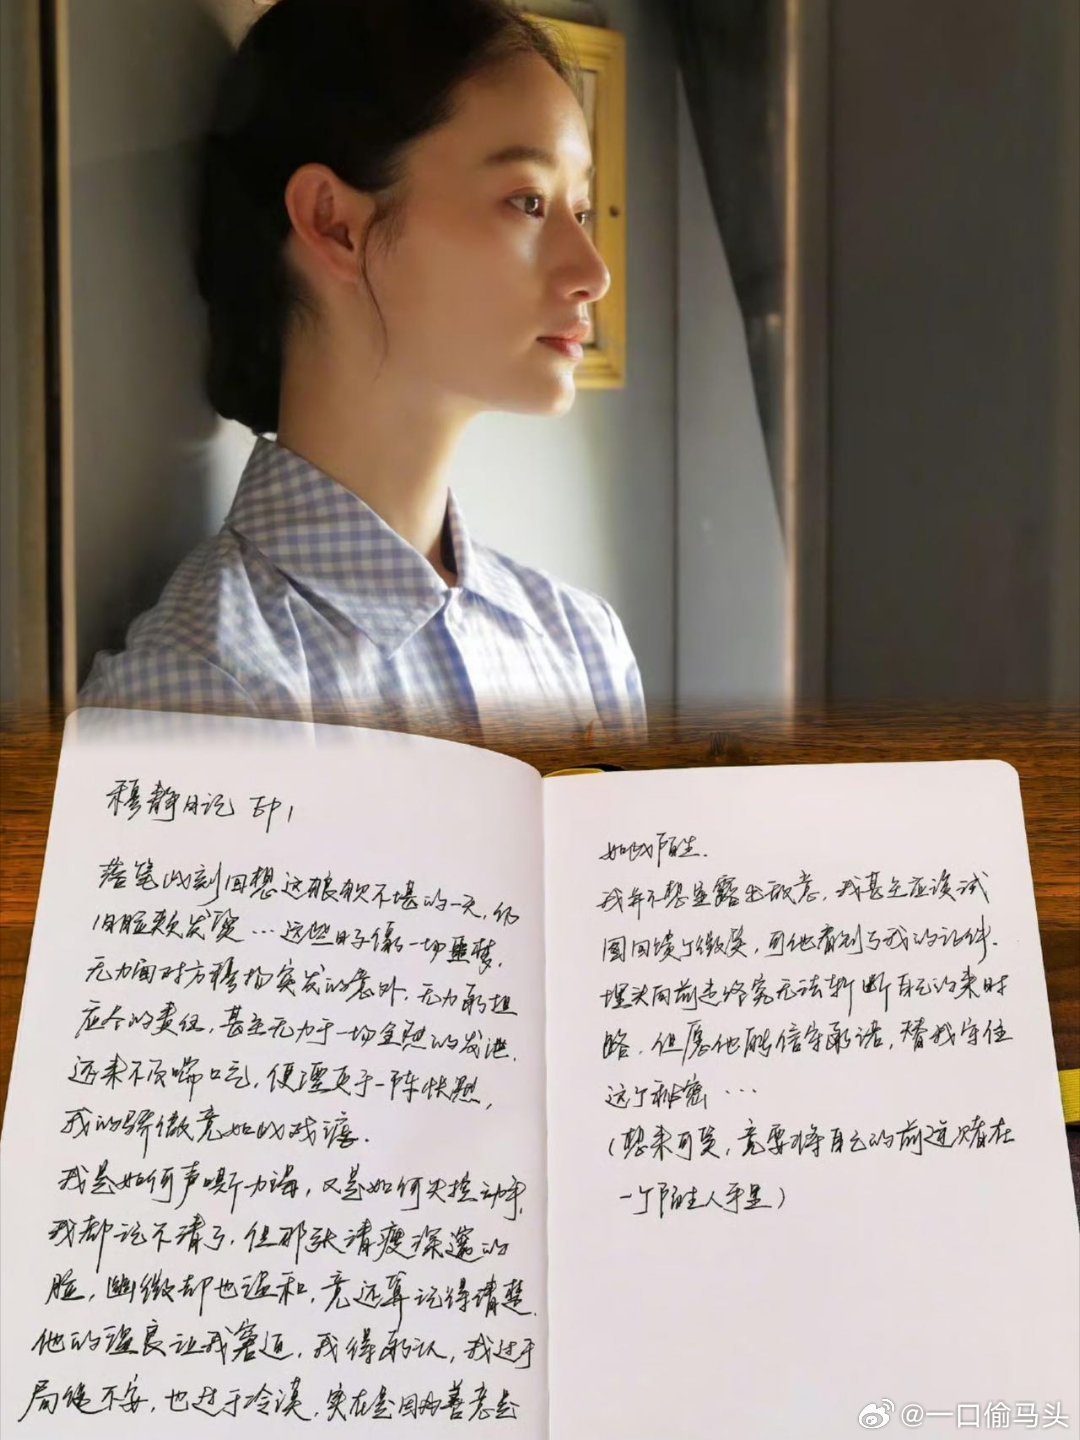 穆静日记 EP1
落笔此刻回想这狼狈不堪的一天,仍
旧脸颊发烫…这些日子像一场噩梦,
无力面对方穆扬突发的意外,无力承担
应尽的责任,甚至无力于一场全然的发泄.
还来不及喘口气,便湮灭于一阵快照,
我的骄傲竟如此戏谑.
我是如何声嘶力竭,又是如何失控动手,
我都记不清了.但那张清瘦深邃的
脸,幽微却也温和,竟还算记得清楚.
他的温良让我窘迫,我得承认,我过于
局促不安,也过于冷漠,实在是因为善意是
如此陌生.
我并不想显露出敌意,我甚至应该试
图回馈个微笑,可他看到了我的证件.
埋头向前走终究无法斩断自己的来时
路.但愿他能信守承诺,替我守住
这个秘密…
(想来可笑,竟要将自己的前途赌在
一个陌生人手里)
@一口偷马头